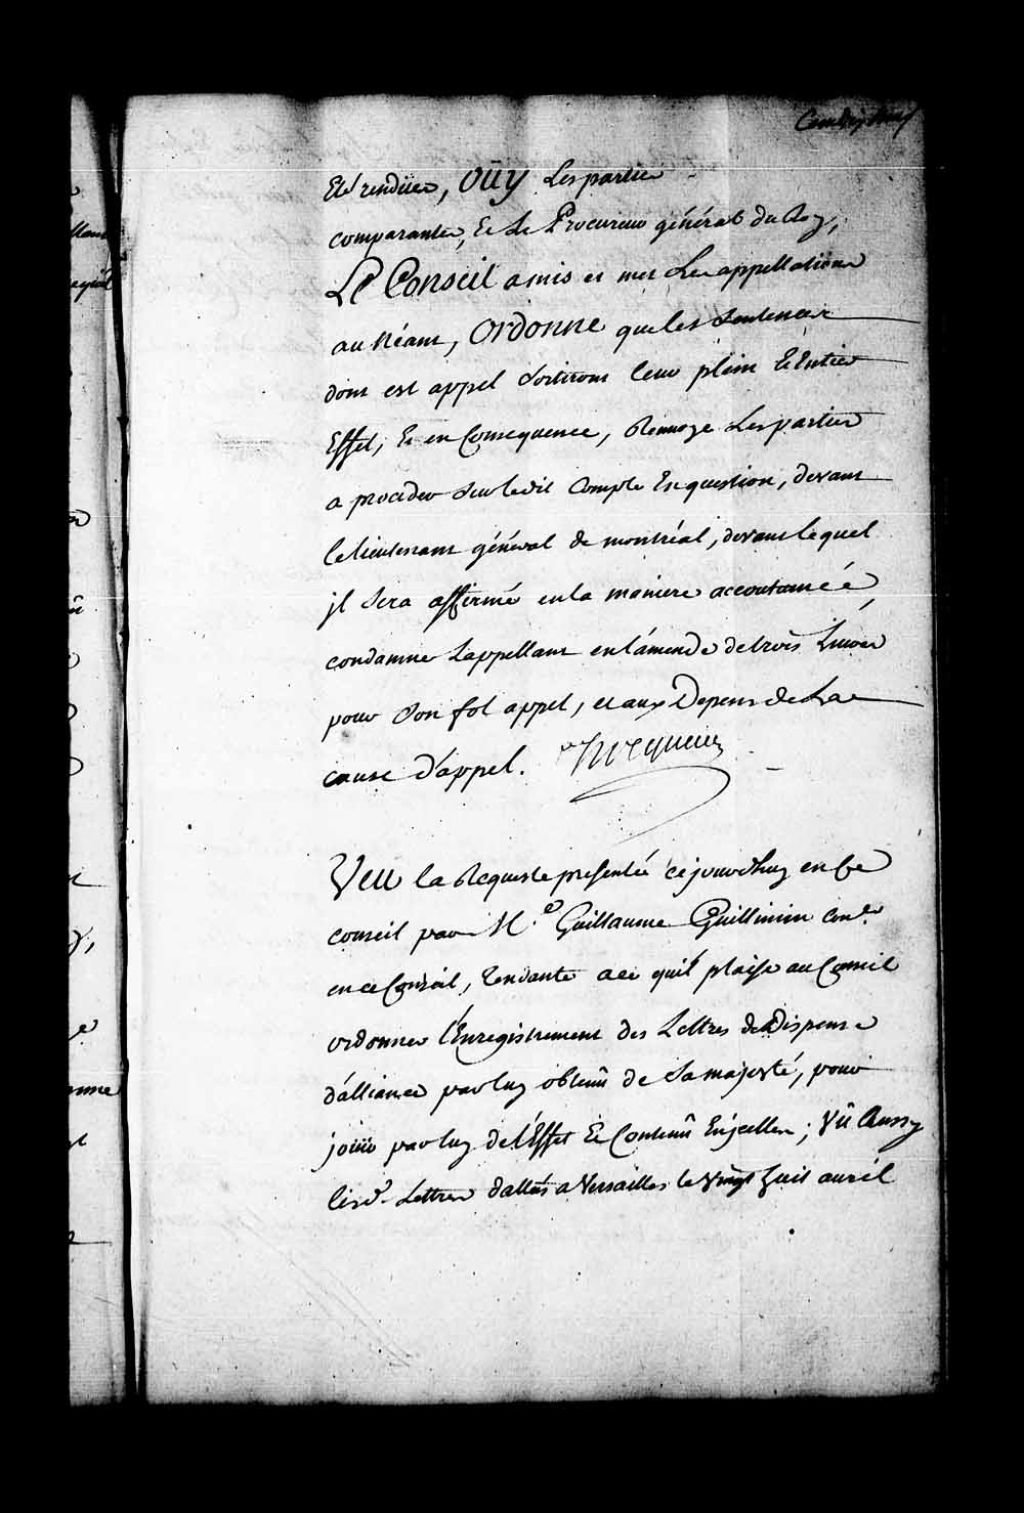 Eté rendües, Oüy Les parties
comparantes, Et Le Procureur général du Roy,
Le Conseil a mis et met Les appellations
au Néant, Ordonne que les Sentences
dont est appel Sortiront leur plein Et Entier
Effet, Et en Consequence, Renvoye Les parties
a proceder Sur ledit Compte En question, devant
le lieutenant général de montréal, devant lequel
jl Sera affirmé en la maniere accoutumée,
condamne L'appellant en l'amende de trois Livres
pour Son fol appel, et aux Depens de La
cause d'appel. Hocquart
Veu la Requeste presentée cejourdhuy en Ce
conseil par Me Guillaume Guillimin Coner
en ce Conseil, Tendante a ce qu'il plaise au Conseil
ordonner l'Enregistrement des Lettres de Dispense
d'alliance par luy obtenû de Sa majesté, pour
joüir par luy de l'Effet Et Contenû Enjcelles; Vû Aussy
lesd. Lettres dattés a Versailles le Vingt huit avril